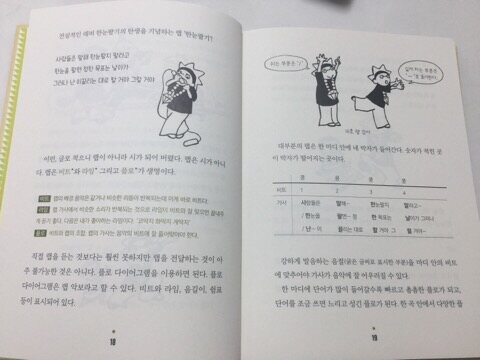 전설적인 래퍼 한눈팔기의 탄생을 기념하는 랩 '한눈팔기'
사람들은 말해 한눈팔지 말라고
한눈을 팔면 정한 목표는 날아가
그러나 난 이끌리는 대로 할 거야 그럴 거야
이런, 글로 적으니 랩이 아니라 시가 되어 버렸다. 랩은 시가 아니
다. 랩은 비트*와 라임* 그리고 플로*가 생명이다.
비트
라임
플로
직접 랩을 듣는 것보다는 훨씬 못하지만 랩을 전달하는 것이 아
주 불가능한 것은 아니다. 플로 다이어그램을 이용하면 된다. 플로
다이어그램은 랩 악보라고 할 수 있다. 비트와 라임, 음길이, 쉼표
등이 표시되어 있다.
18
쉬는 부분은 '/'
길어지는 부분은
'-'로 표시한다
대부분의 랩은 한 마디 안에 네 박자가 들어간다. 숫자가 적힌 곳
이 박자가 떨어지는 곳이다.
쿵 쿵 쿵 쿵
비트 1 2 3 4
가사 사람들은 말해- 한눈팔지 말라고-
/ 한눈을 팔면- 정 한 목표는 날아가 그러나
/ 난- 이 끌리는 대로 할 거야 그 럴 거야
강하게 발음하는 음절(굵은 글씨로 표시한 부분)을 마디 안의 비트
에 맞추어야 가사가 음악에 잘 어우러질 수 있다.
한 마디에 단어가 많이 들어갈수록 빠르고 촘촘한 플로가 되고,
단어를 조금 쓰면 느리고 성긴 플로가 된다. 한 곡 안에서 다양한 플
19